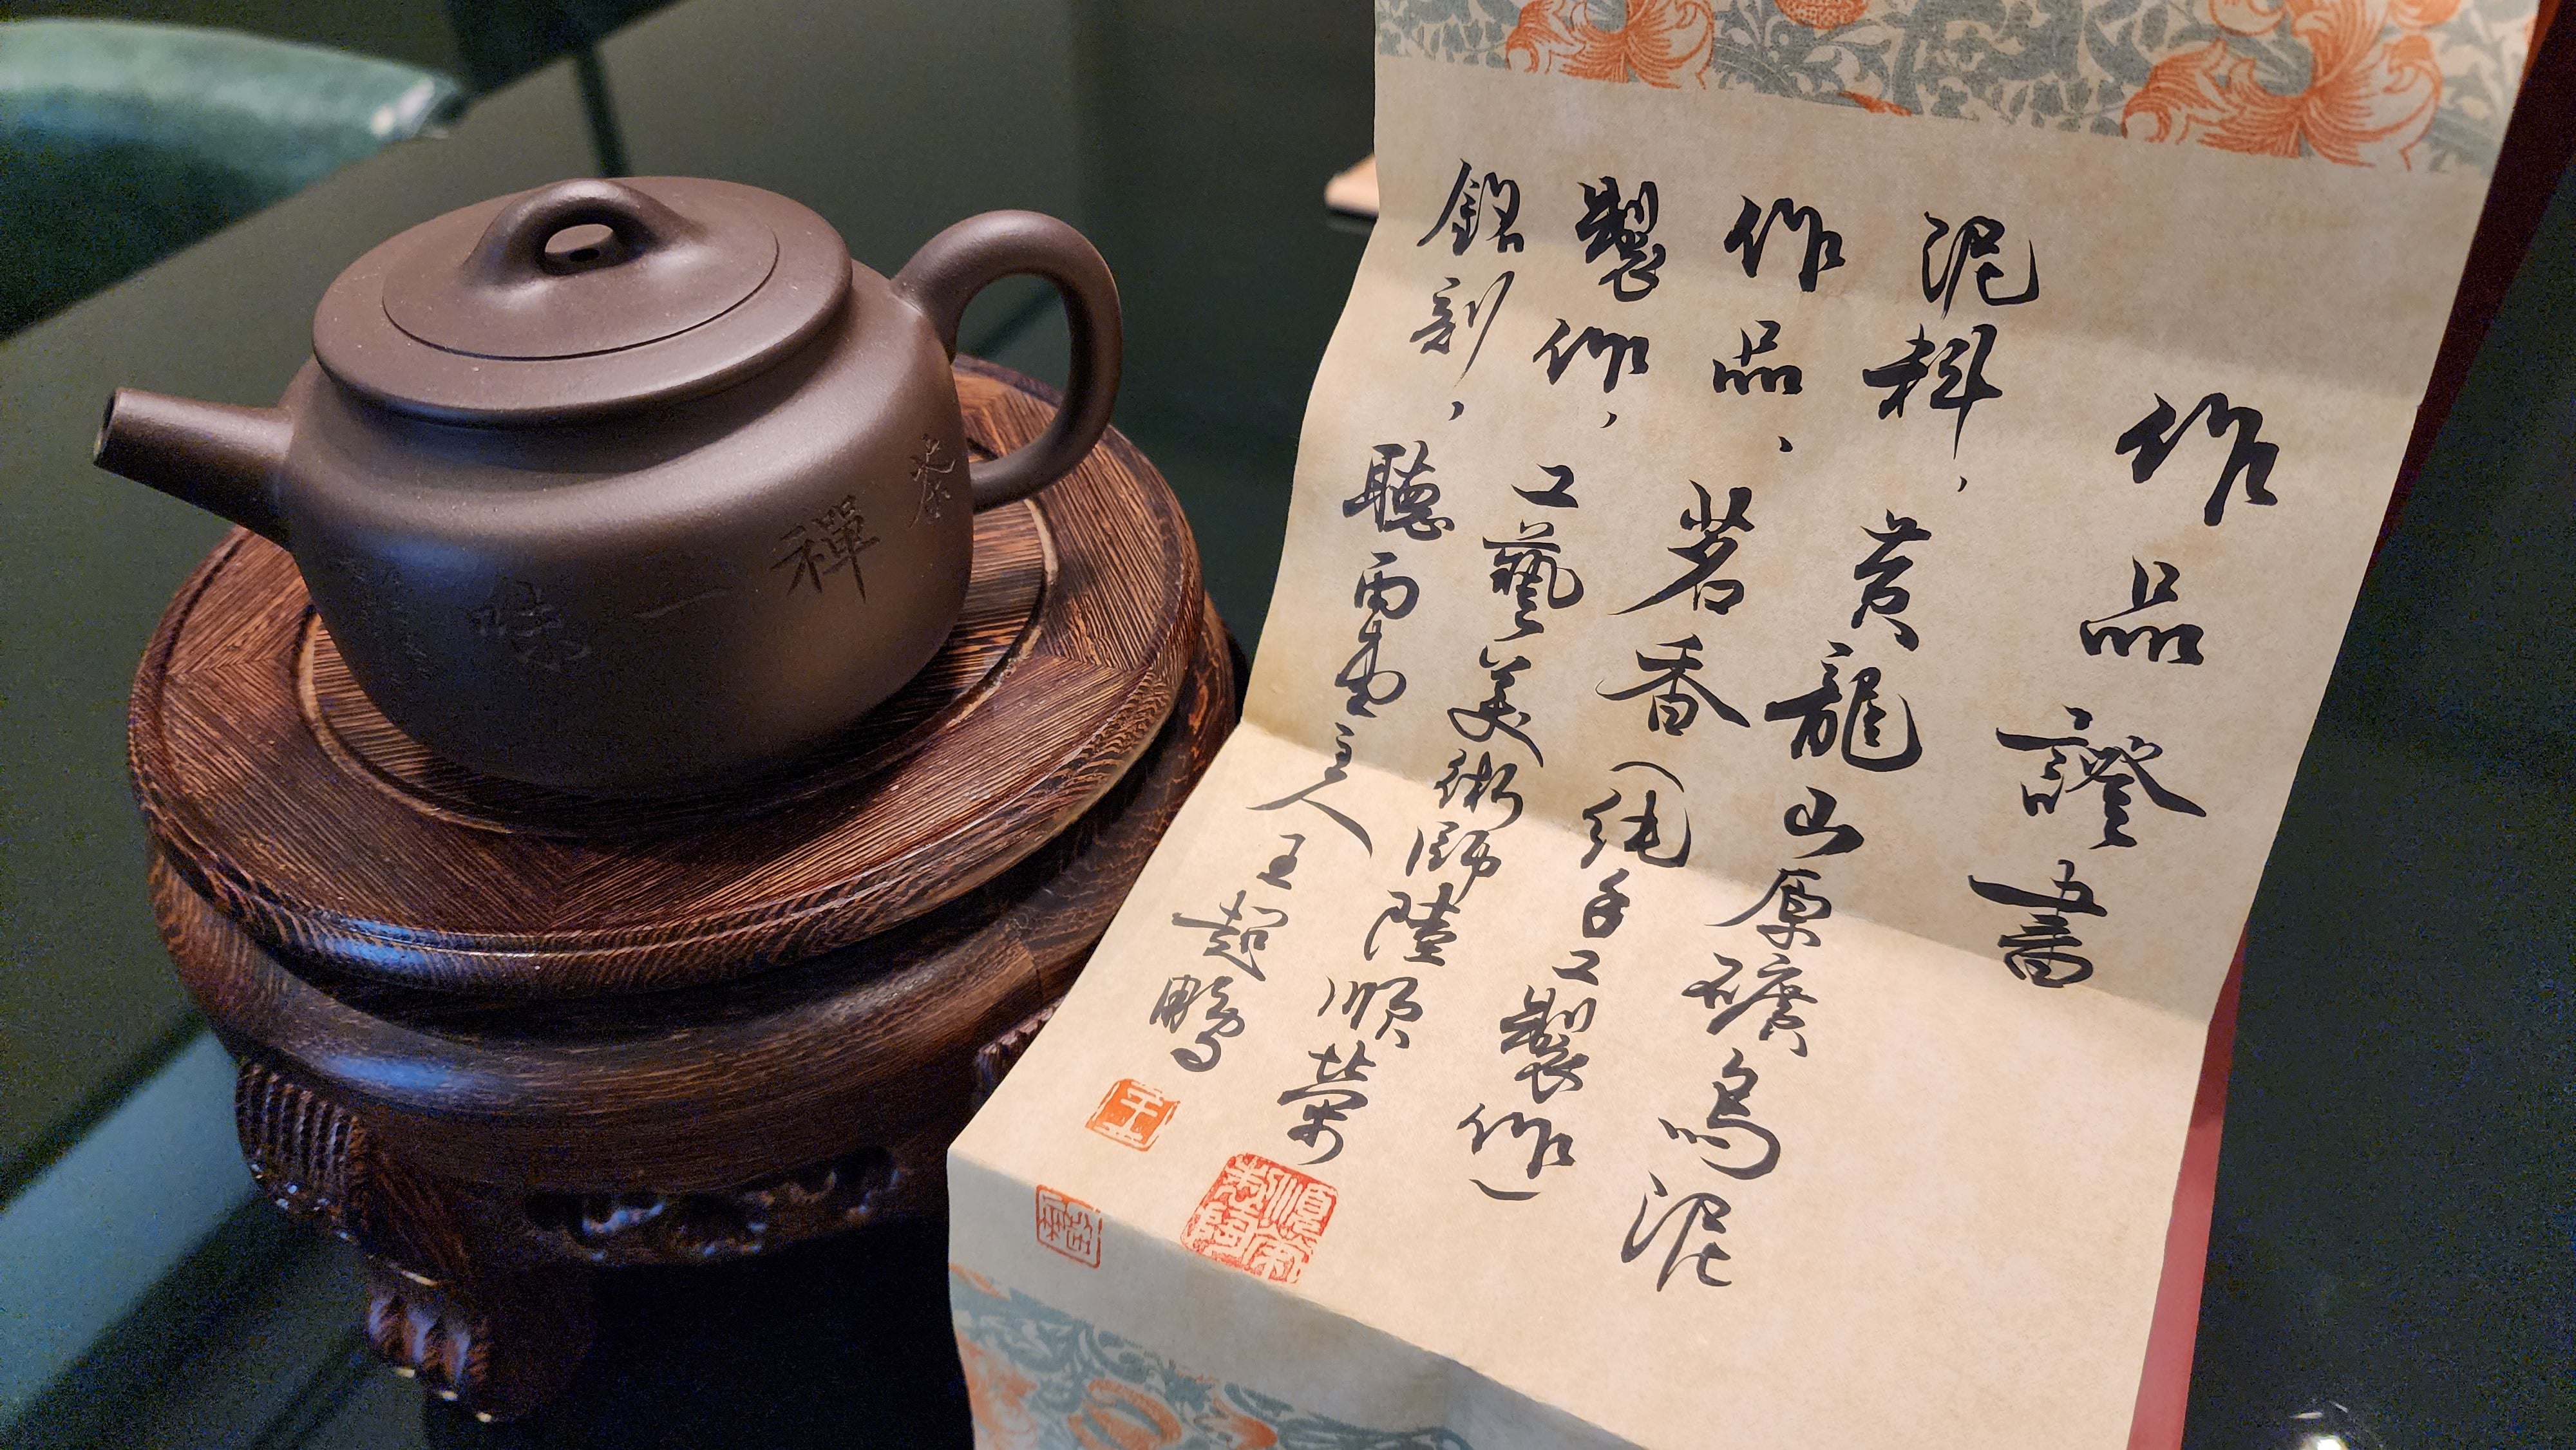 茶禪一味
作品證書
泥料，黄龍山原礦烏泥
作品、茗香（純手工製作）
製作，工藝美術師陸順榮
銘刻，聽雨主人王超鵬
王